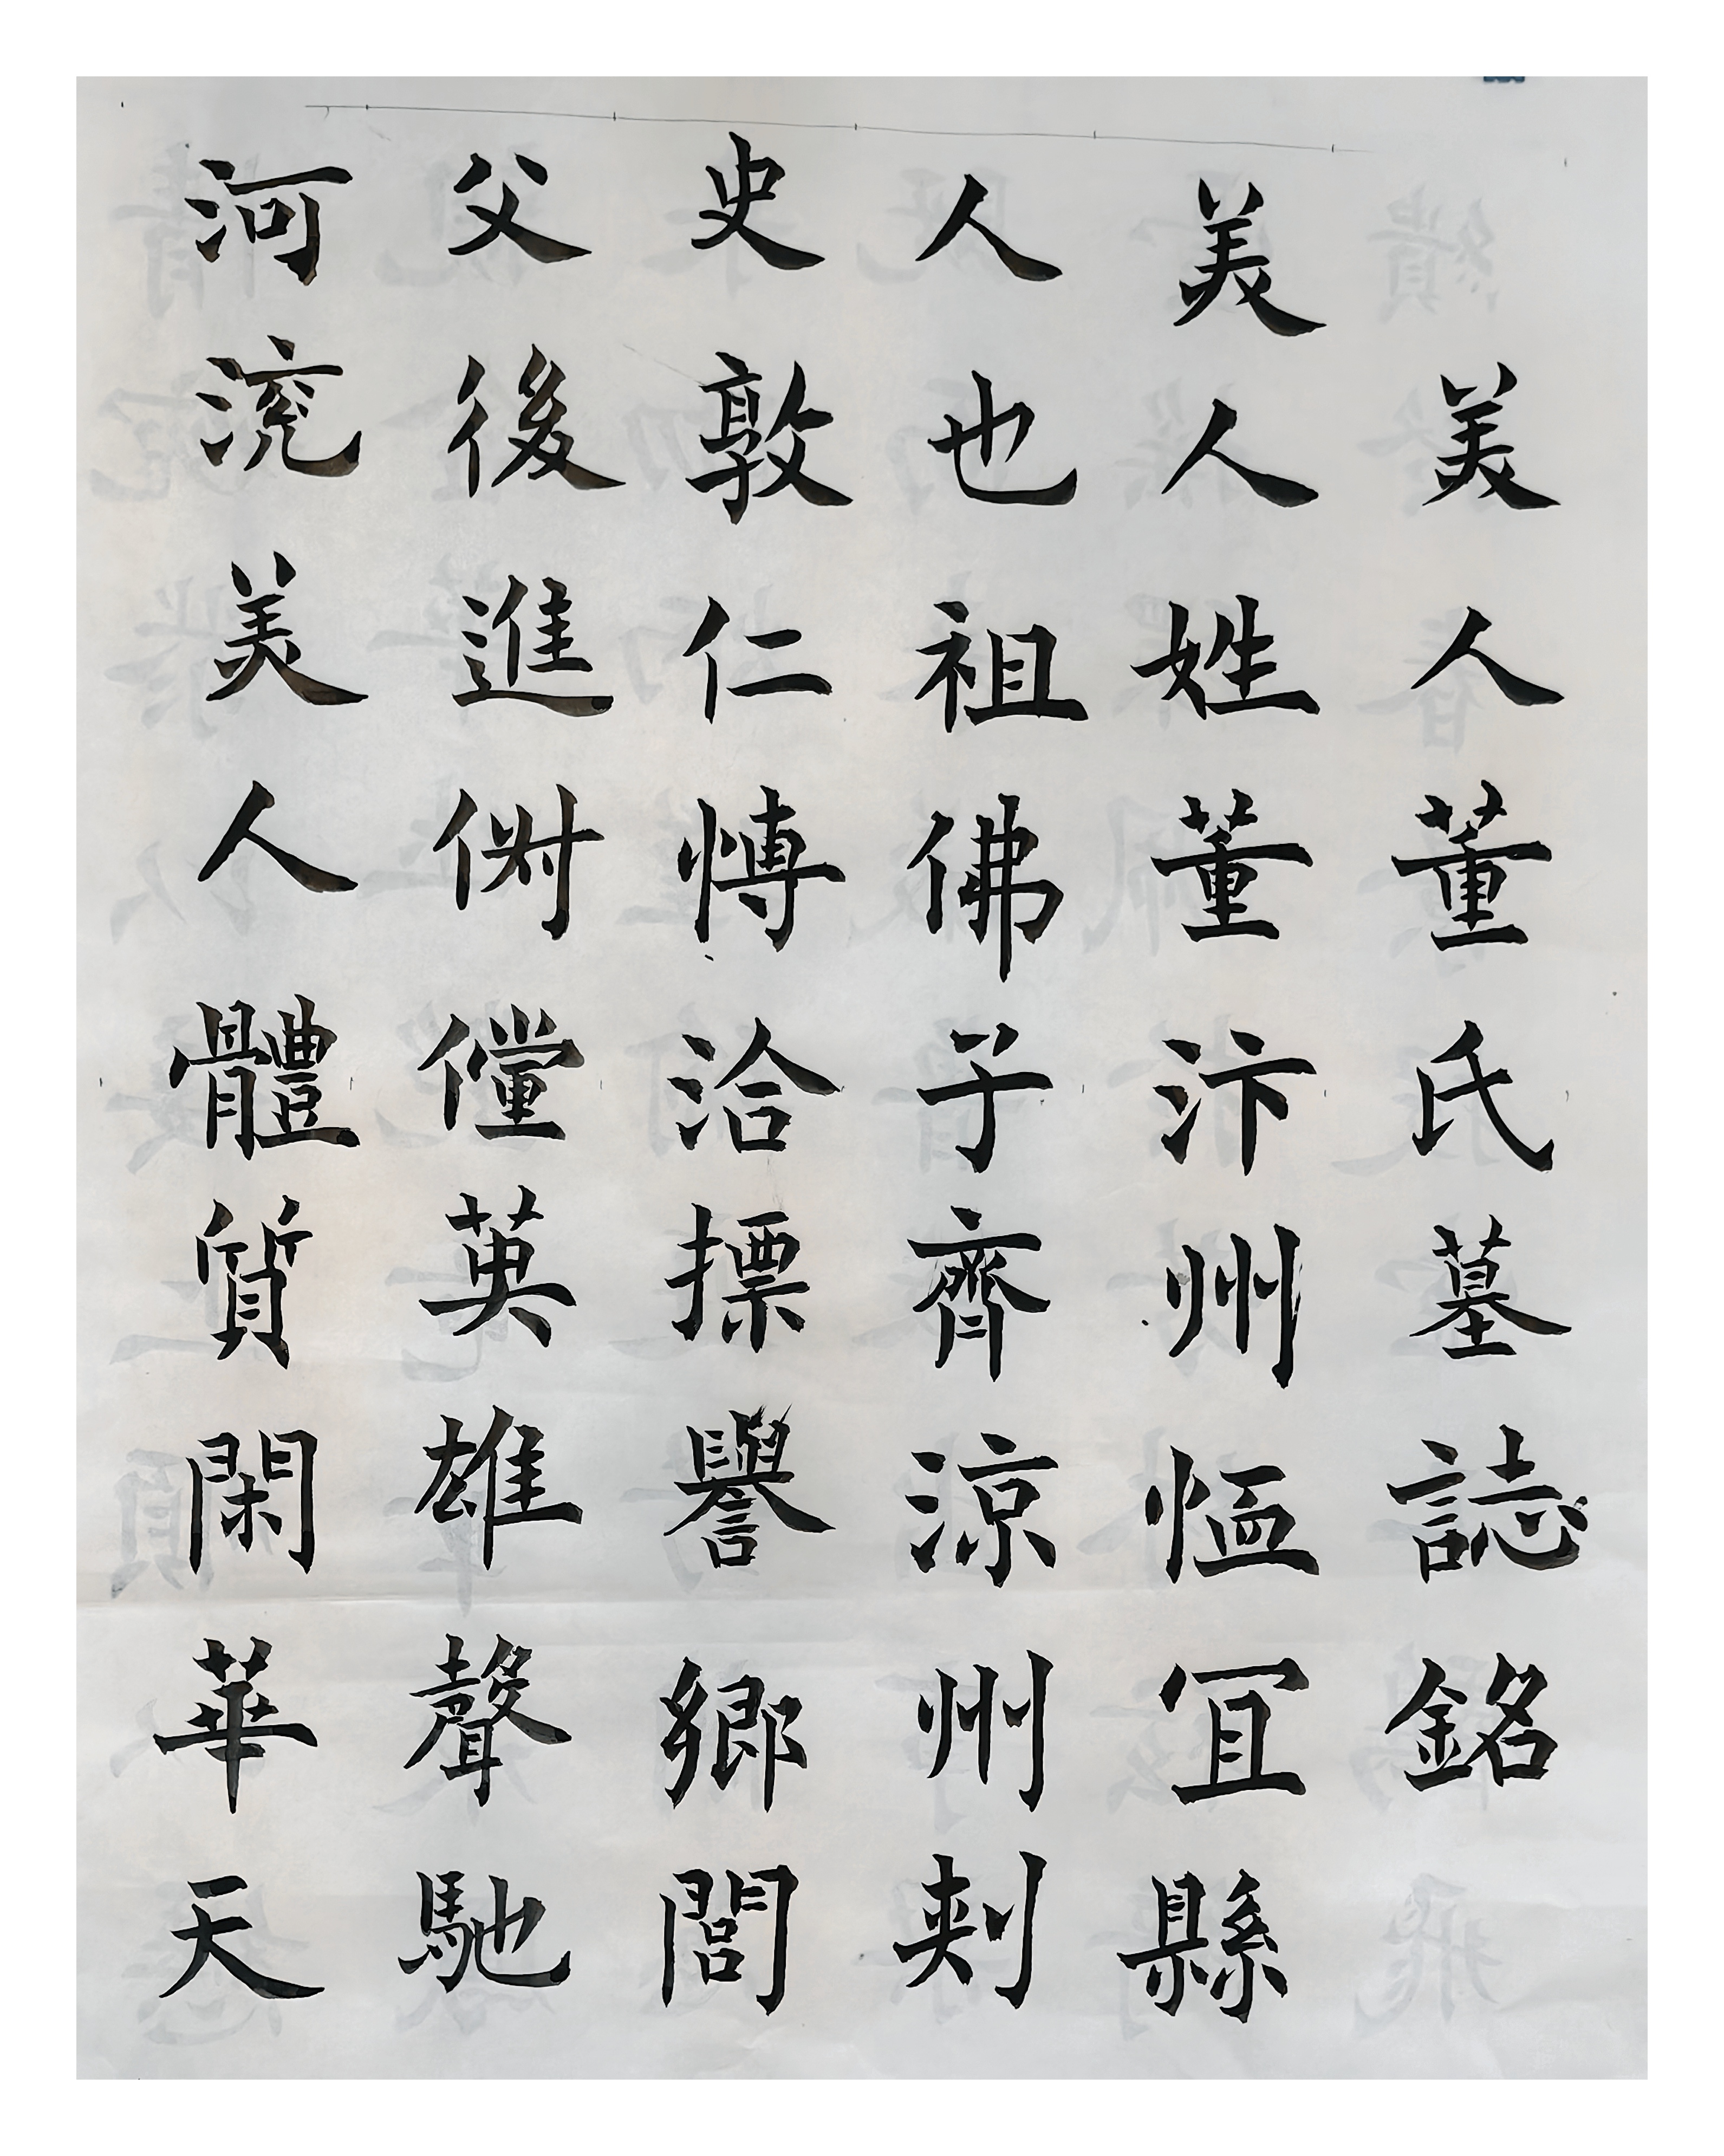 美人董氏墓誌銘
美人姓董汴州恤冝縣
人也祖佛子齊涼州刺
史敦仁愽洽摽譽鄉閭
父後進俶儻英雄聲馳
河渷美人體質閑華天